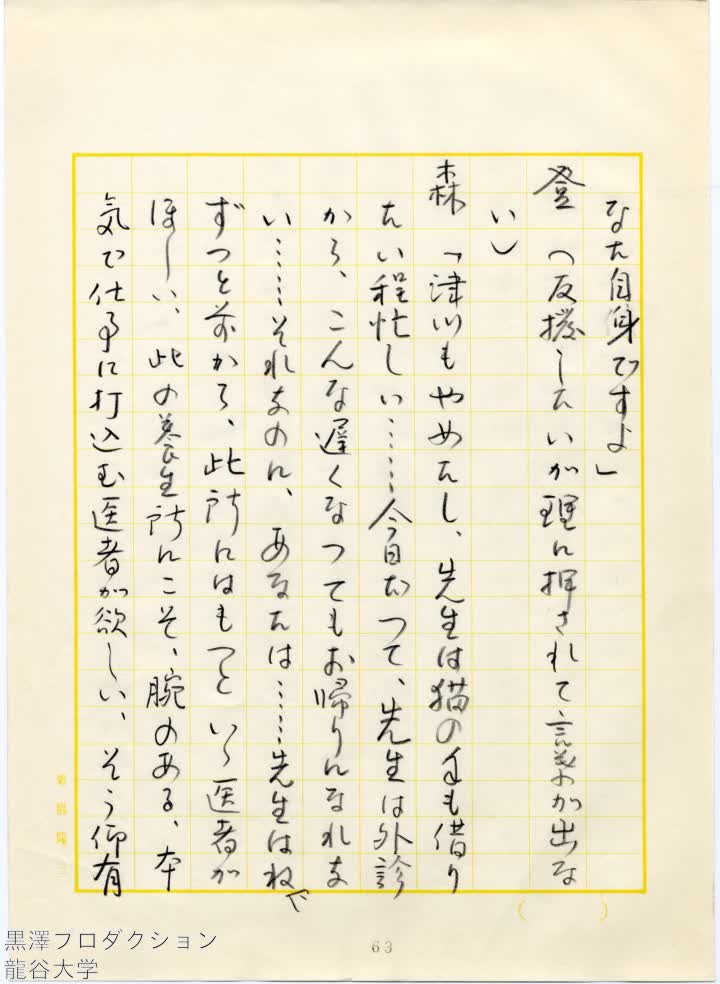 なた自身ですよ」
登　（反撥したいが理に押されて言葉が出な
い）
森　「津川もやめたし、先生は猫の手も借り
たい程忙しい……今日だつて、先生は外診
から、こんな遅くなつてもお帰りになれな
い……それなのに、あなたは……先生はね、
ずつと前から、此所にはもつといゝ医者が
ほしい、此の養生所にこそ、腕のある、本
気で仕事に打込む医者が欲しい、そう仰有
63
黒澤プロダクション
龍谷大学